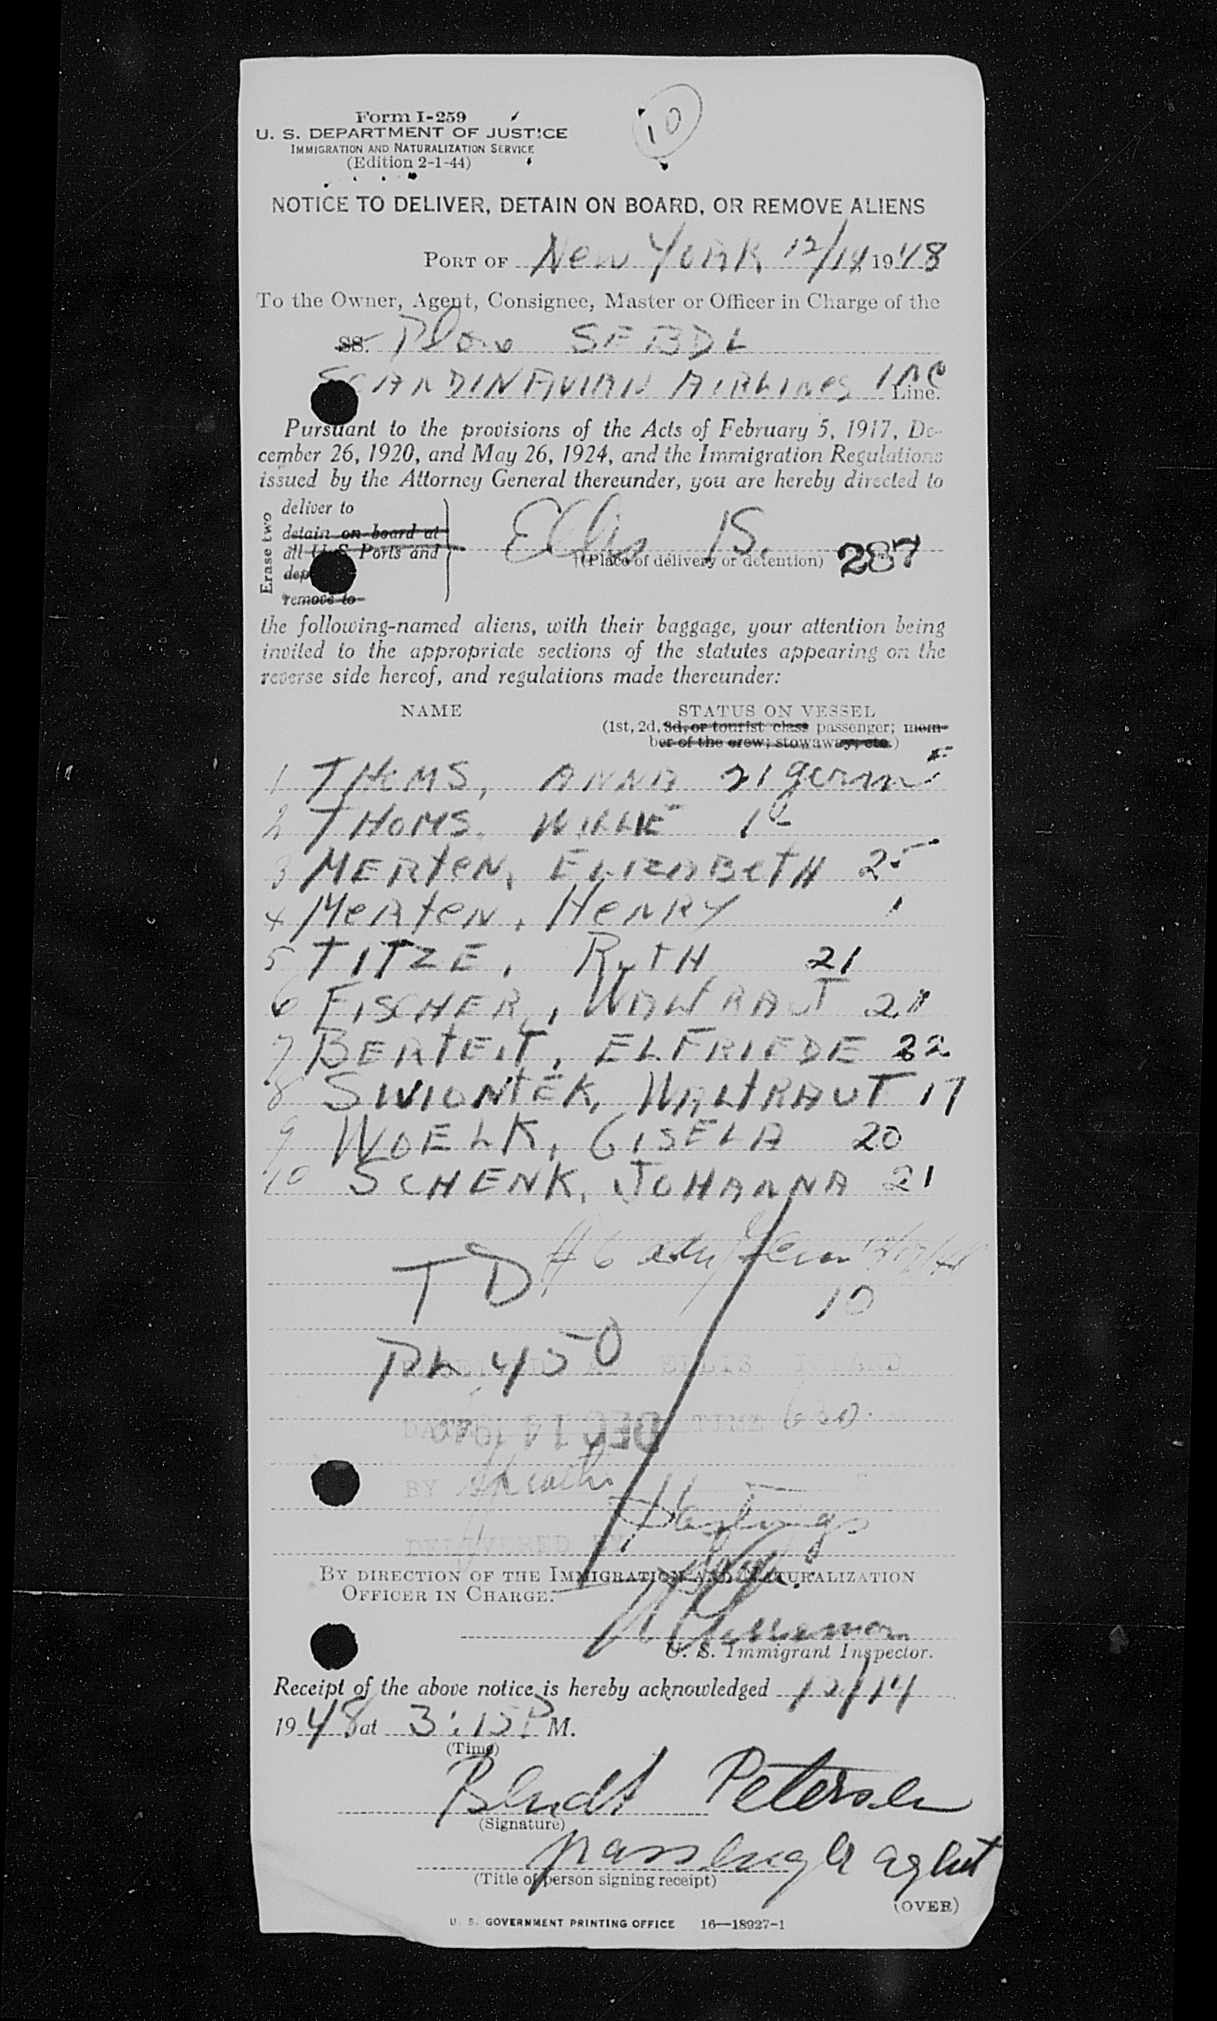 10
Form I-259
U. S. DEPARTMENT OF JUSTICE
IMMIGRATION AND NATURALIZATION SERVICE
(Edition 2-1-44)
NOTICE TO DELIVER, DETAIN ON BOARD, OR REMOVE ALIENS
PORT OF New YORK 12/14 1948
To the Owner, Agent, Consignee, Master or Officer in Charge of the
SS. Plane SEBDL
SCANDINAVIAN AIRLINES INC Line.
Pursuant to the provisions of the Acts of February 5, 1917, De-
cember 26, 1920, and May 26, 1924, and the Immigration Regulations
issued by the Attorney General thereunder, you are hereby directed to
Erase two
deliver to
detain on board at
all U S Ports and
remove to
Ellis IS.
(Place of delivery or detention)
287
the following-named aliens, with their baggage, your attention being
invited to the appropriate sections of the statutes appearing on the
reverse side hereof, and regulations made thereunder:
NAME STATUS ON VESSEL
(1st, 2d, 3d, or tourist class passenger; mem-
ber of the crew; stowaway, etc.)
1 THOMS, ANNA 21 germ
2 THOMS. WILLIE 1
3 MERteN, ELIZABetH 25
4 MeRteN, HeNRY 1
5 TITZE, RUTH 21
6 FISCHER, WALTRAUT 21
7 BERteIT, ELFRIEDE 22
8 SWIONtEK, WALtRAUT 17
9 WOELK, GISELA 20
10 SCHENK, JOHANNA 21
TD
10
450
ELLIS ISLAND
DATE DEC 14 TIME 630
BY
Hastings
DELIVERED
BY DIRECTION OF THE IMMIGRATION AND NATURALIZATION
OFFICER IN CHARGE:
U. S. Immigrant Inspector.
Receipt of the above notice is hereby acknowledged 12/14
1948 at 3:15 P M.
(Time)
Petersen
(Signature)
passenger agent
(Title of person signing receipt)
(OVER)
U. S. GOVERNMENT PRINTING OFFICE 16—18927-1